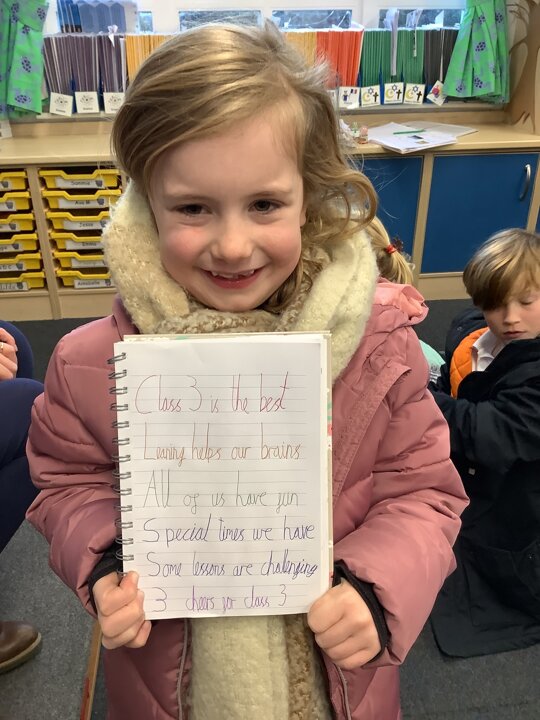 Class 3 is the best
Learning helps our brains
All of us have fun
Special times we have
Some lessons are challenging
3 cheers for class 3